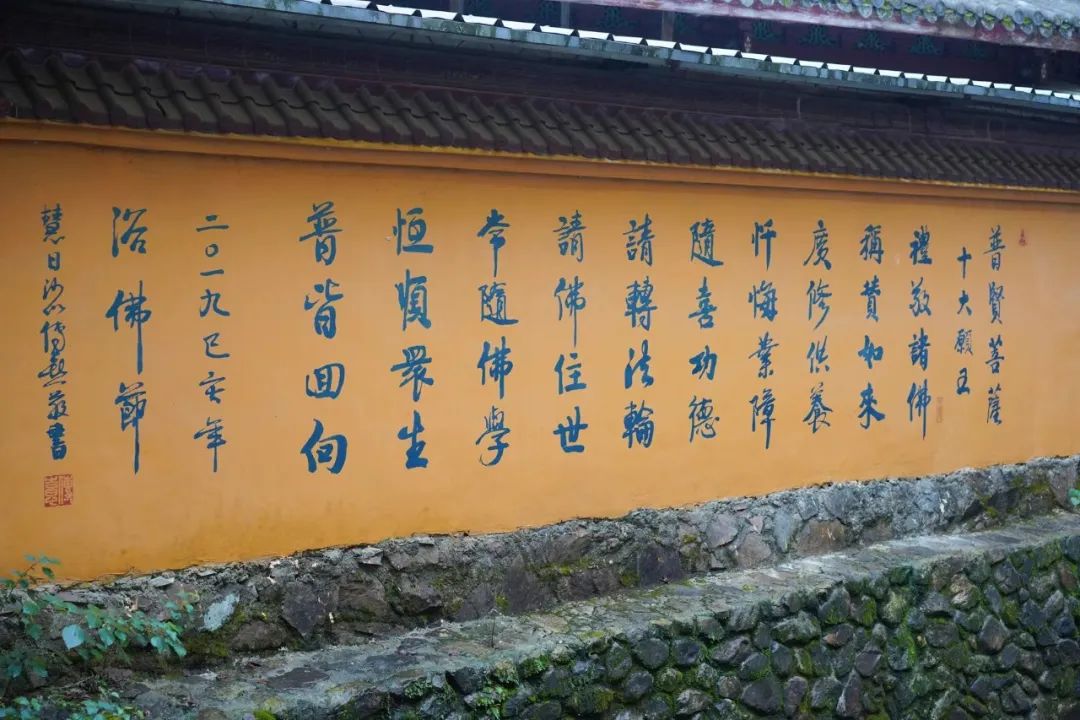 普賢菩薩
十大願王
禮敬諸佛
稱贊如來
廣修供養
忏悔業障
隨喜功德
請轉法輪
請佛住世
常隨佛學
恒順眾生
普皆回向
二〇一九己亥年
浴佛節
慧日沙门傳喜敬書